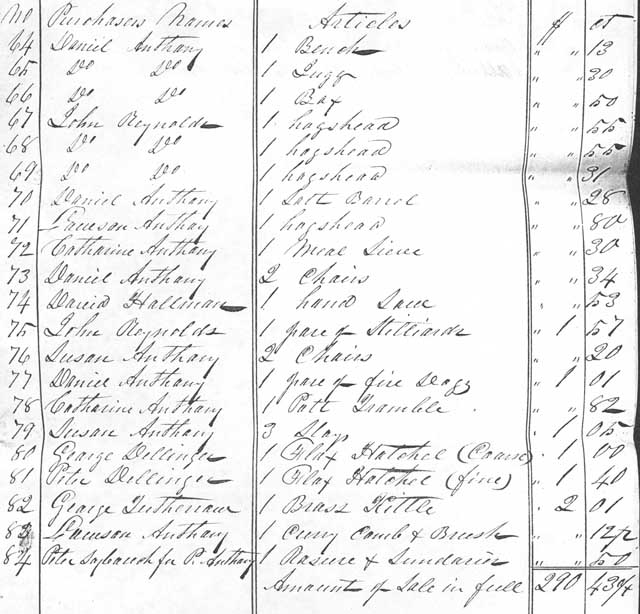 No Purchasers Names Articles $ ct
64 Daniel Anthony 1 Bench " " 13
65 Do Do 1 Jugg " " 30
66 Do Do 1 Box " " 50
67 John Reynolds 1 hogshead " " 55
68 Do Do 1 hogshead " " 55
69 Do Do 1 hogshead " " 31
70 Daniel Anthony 1 Salt Barrel " " 28
71 Lawson Anthony 1 hogshead " " 80
72 Catharine Anthony 1 Meal Sieve " " 30
73 Daniel Anthony 2 Chairs " " 34
74 David Hallman 1 hand Saw " " 53
75 John Reynolds 1 pare of Stilliards " 1 57
76 Susan Anthony 2 Chairs " " 20
77 Daniel Anthony 1 pare of fire Dogg " 1 01
78 Catharine Anthony 1 Pott Tramble " " 82
79 Susan Anthony 3 Slays " 1 05
80 George Dellinger 1 Flax Hatchel (Coarse) " 1 00
81 Peter Dellinger 1 Flax Hatchel (fine) " 1 40
82 George 1 Brass Kittle " 2 01
83 Lawson Anthony 1 Curry Comb & Brush " " 12½
84 Peter for P. Anthony 1 Rasure & Sundaries " " 50
Amount of Sale in full 290 43¾